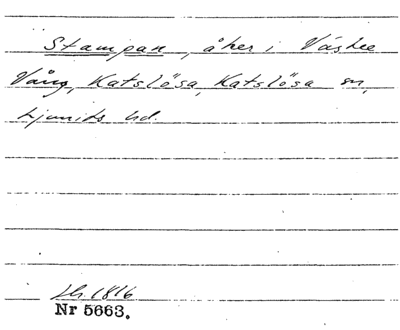 Stampan, åker i Västre
Vång, Katslösa, Katslösa sn,
Ljunits hd.
Lh. 1816
Nr 5663.